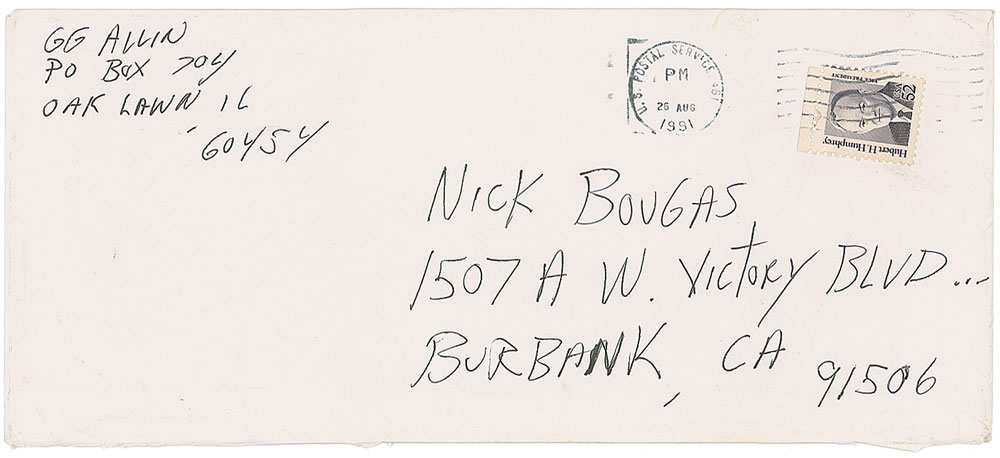 GG ALLIN
PO BOX 704
OAK LAWN IL
60454
U.S. POSTAL SERVICE 481
PM
26 AUG
1991
VICE PRESIDENT
USA 52
Hubert H. Humphrey
NICK BOUGAS
1507 A W. VICTORY BLVD...
BURBANK, CA 91506